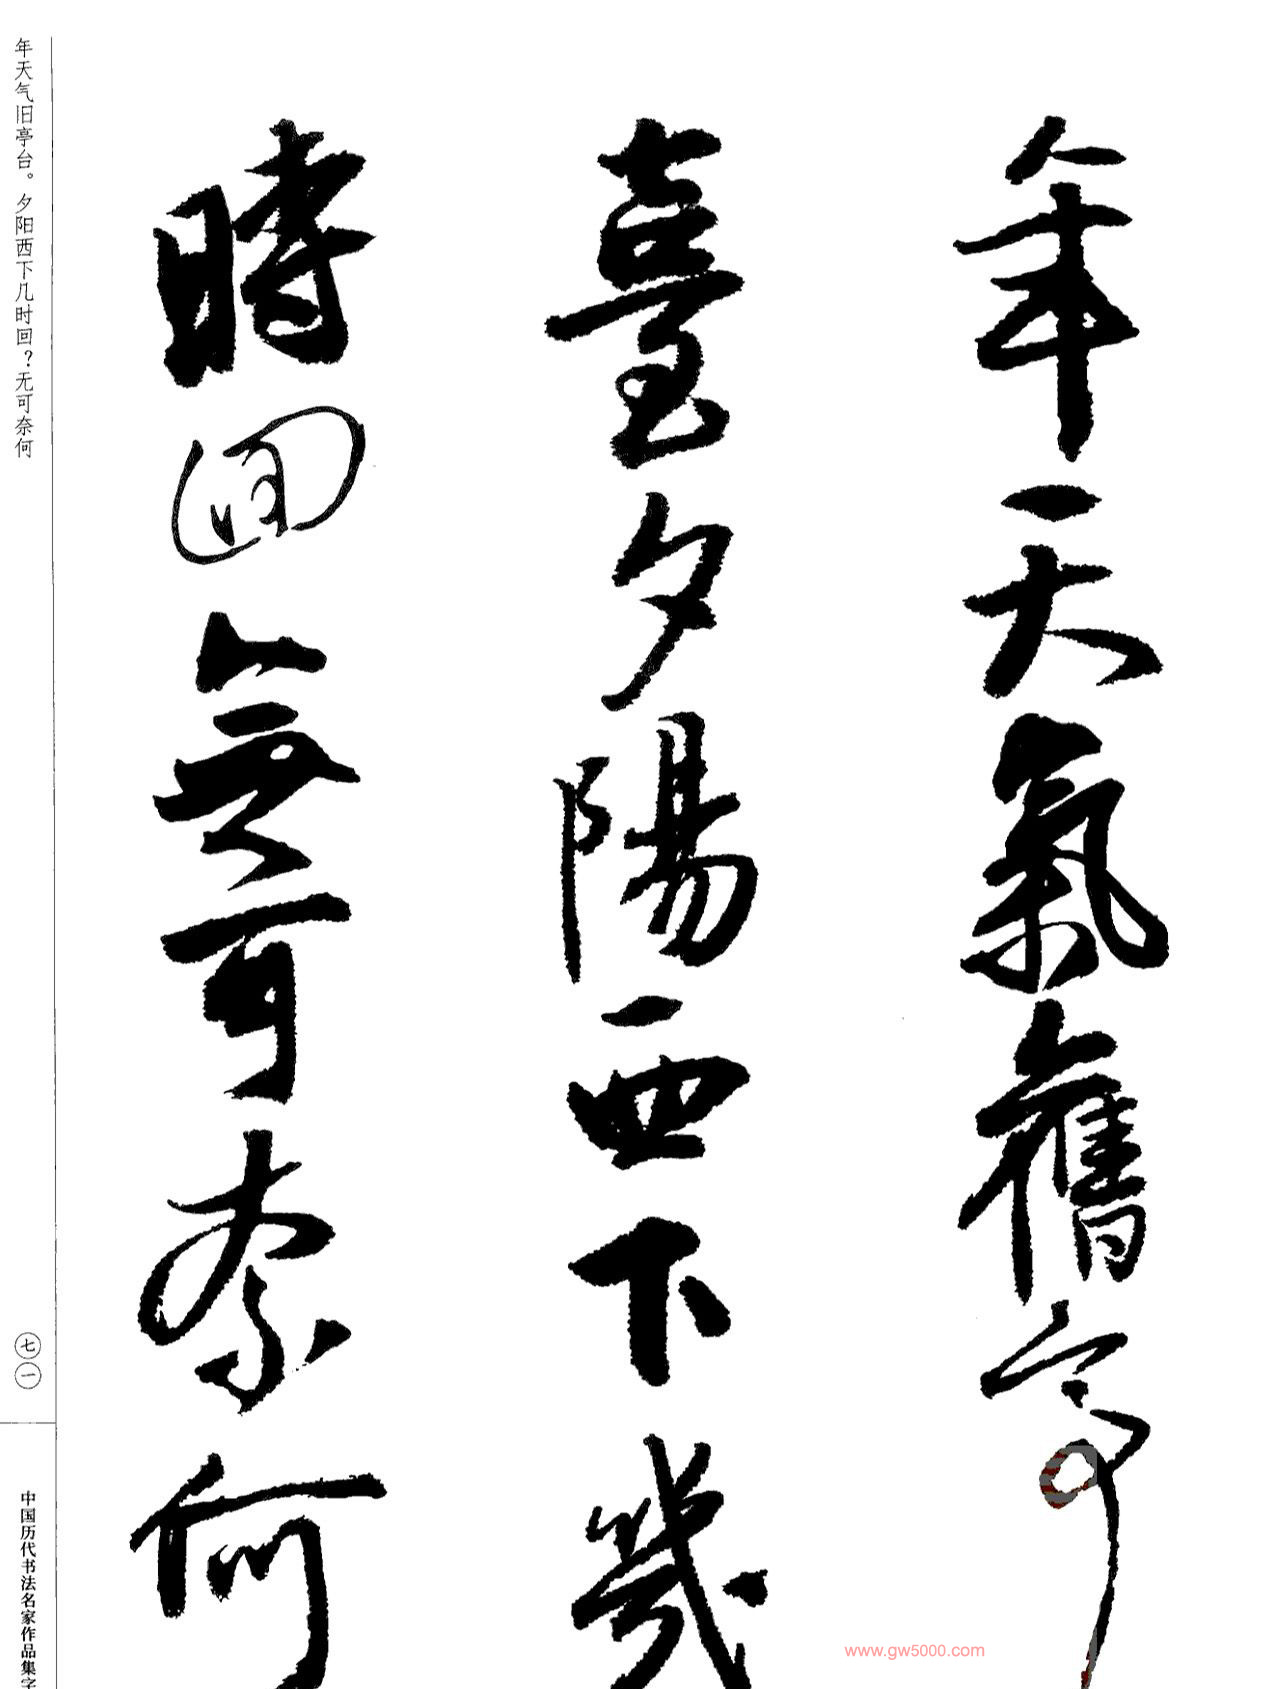 年天氣舊亭
臺夕陽西下幾
時回無可奈何
年天气旧亭台。夕阳西下几时回？无可奈何
七一
中国历代书法名家作品集字
www.gw5000.com